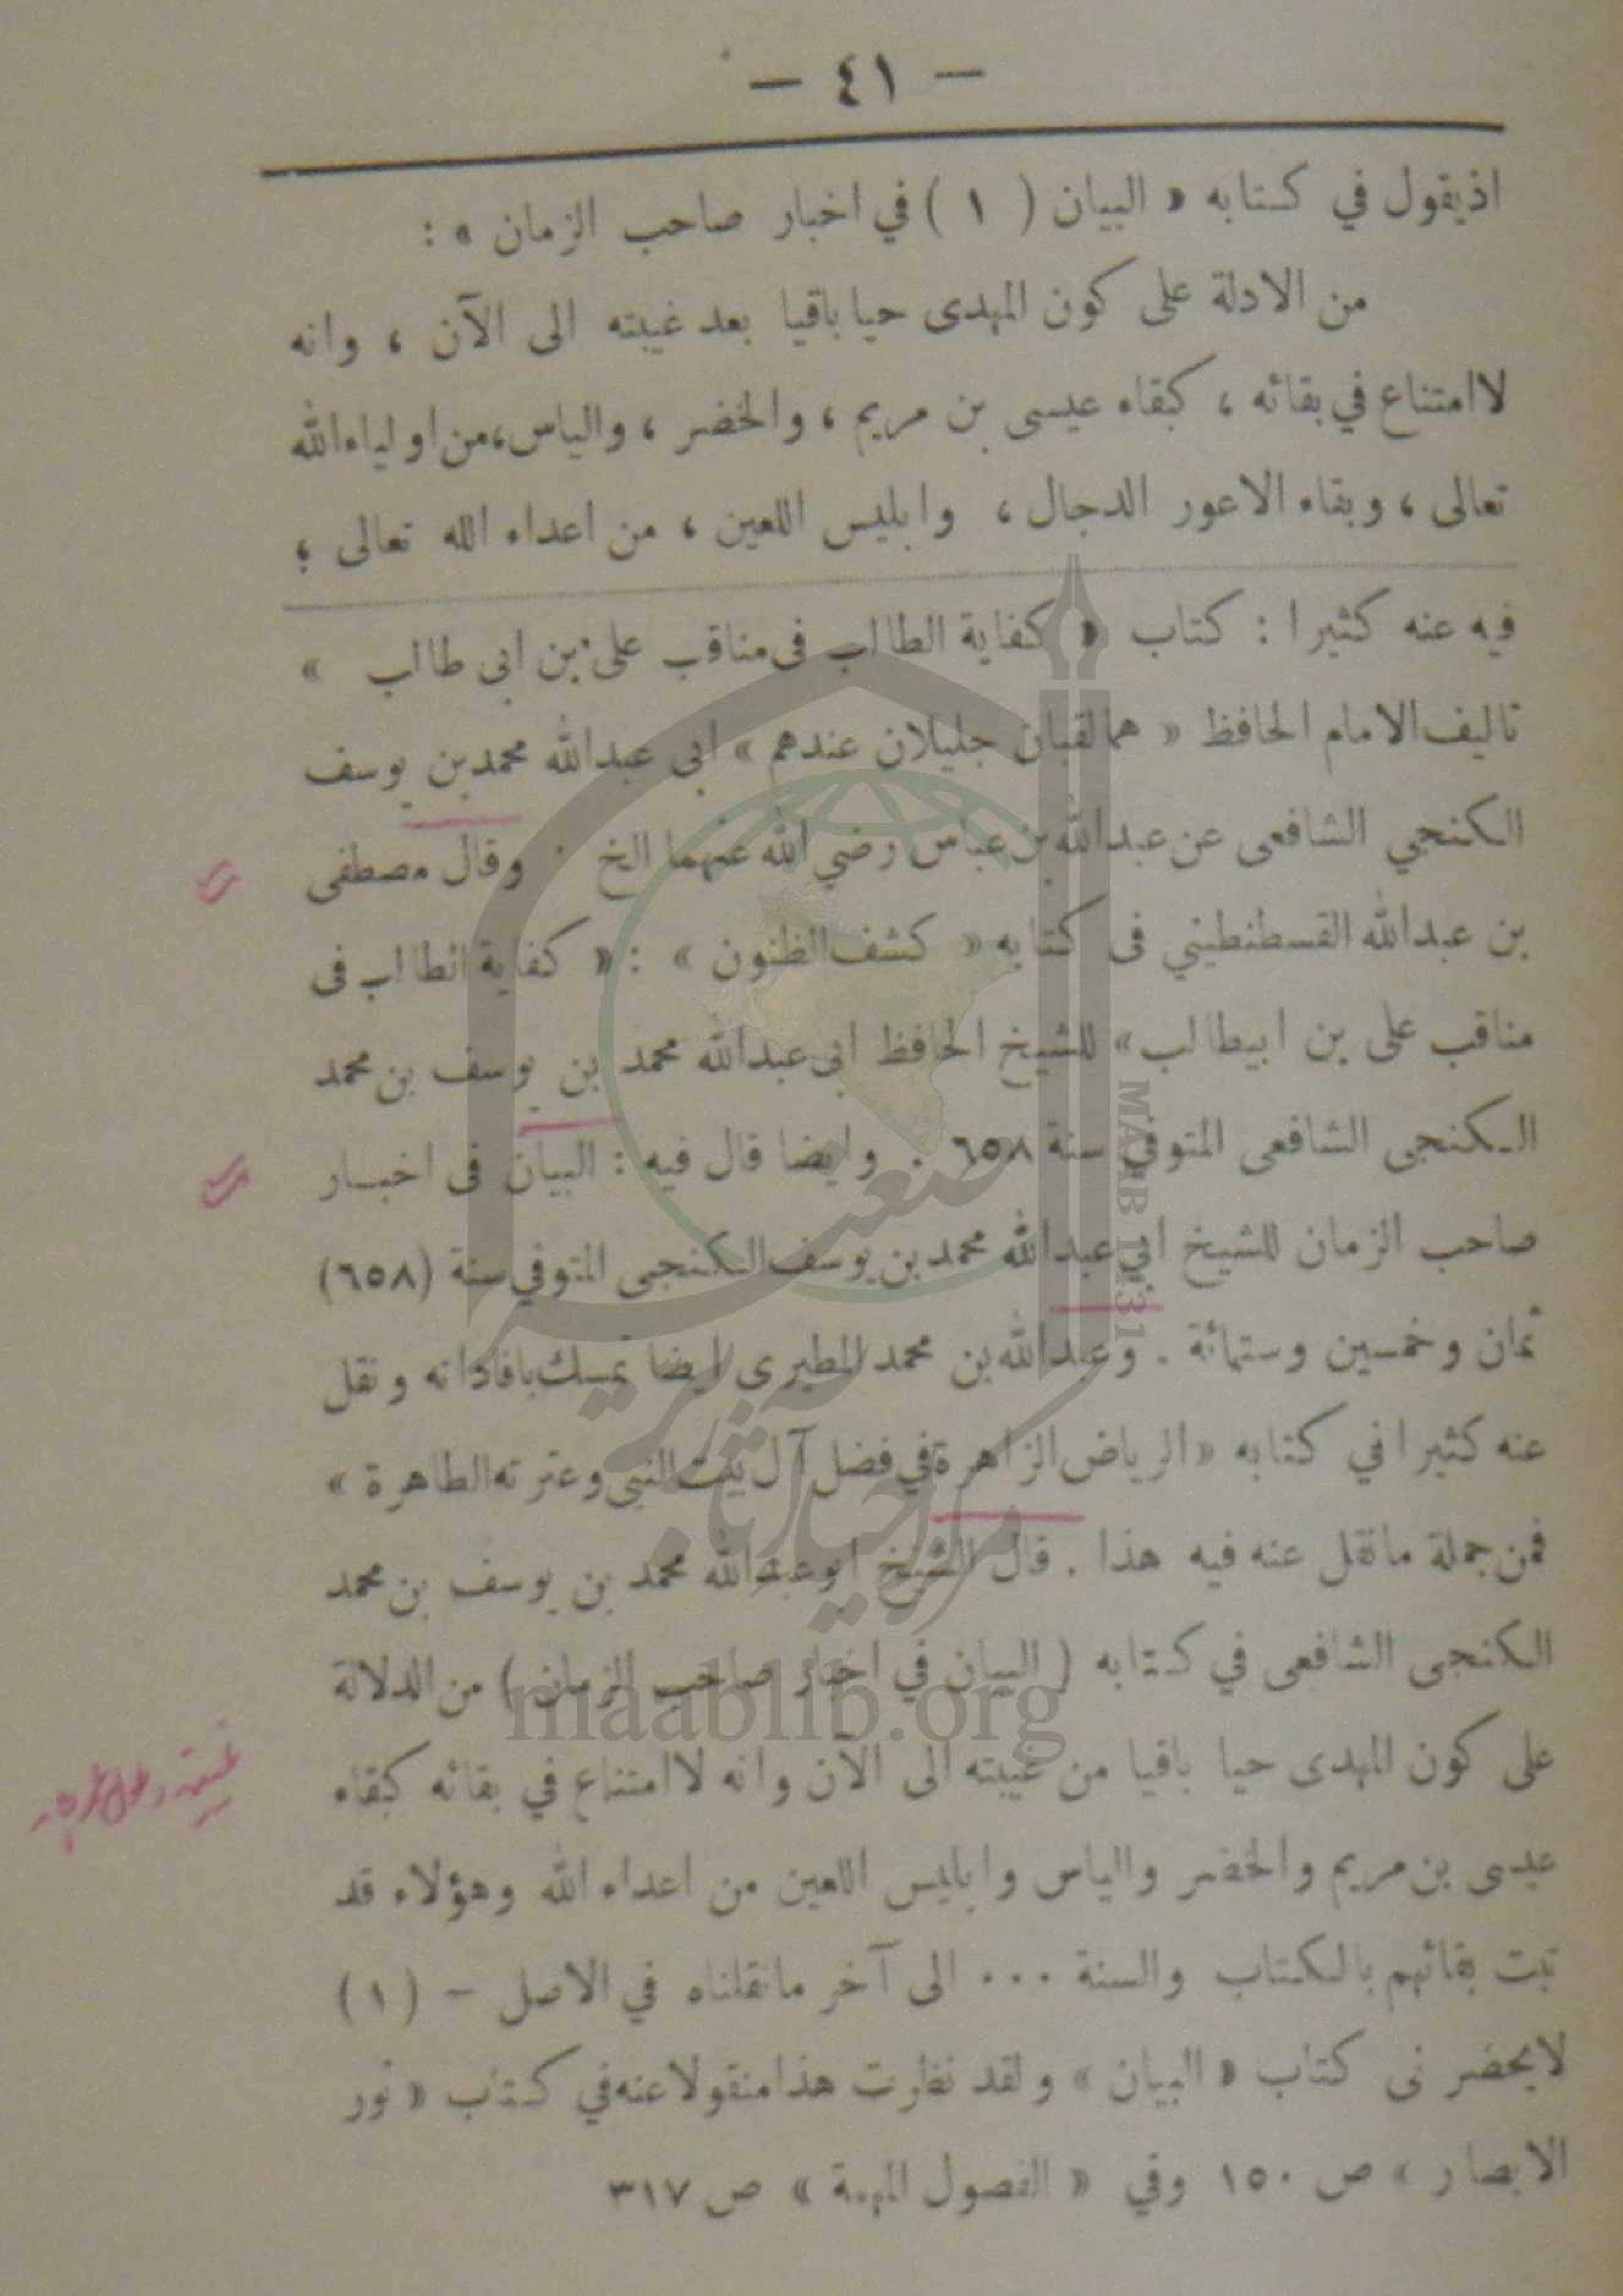 — ٤١ —
اذيقول في كتابه « البيان ( ١ ) في اخبار صاحب الزمان » :
من الادلة على كون المهدى حيا باقيا بعد غيبته الى الآن ، وانه
لاامتناع في بقائه ، كبقاء عيسى بن مريم ، والخضر ، والياس ،من اولياءالله
تعالى ، وبقاء الاعور الدجال ، وابليس اللعين ، من اعداء الله تعالى ؛
فيه عنه كثيرا : كتاب « كفاية الطالب فى مناقب على بن ابى طالب »
تاليف الامام الحافظ « هما لقبان جليلان عندهم » ابي عبدالله محمدبن يوسف
الكنجي الشافعى عن عبدالله بن عباس رضي الله عنهما الخ . وقال مصطفى
بن عبدالله القسطنطيني فى كتابه « كشف الظنون » : « كفاية الطالب فى
مناقب على بن ابيطالب» للشيخ الحافظ ابى عبدالله محمد بن يوسف بن محمد
الكنجى الشافعى المتوفي سنة ٦٥٨ . وايضا قال فيه : البيان فى اخبار
صاحب الزمان للشيخ ابي عبدالله محمد بن يوسف الكنجى المتوفي سنة (٦٥٨)
ثمان وخمسين وستمائة . وعبدالله بن محمد المطيرى ايضا تمسك بافاداته ونقل
عنه كثيرا في كتابه «الرياض الزاهرة في فضل آل بيت النبى وعترته الطاهرة »
فمن جملة مانقل عنه فيه هذا . قال الشيخ ابوعبدالله محمد بن يوسف بن محمد
الكنجى الشافعى في كتابه ( البيان في اخبار صاحب الزمان ) من الدلالة
على كون المهدى حيا باقيا من غيبته الى الآن وانه لاامتناع في بقائه كبقاء
عيسى بن مريم والخضر والياس وابليس اللعين من اعداء الله وهؤلاء قد
ثبت بقائهم بالكتاب والسنة ... الى آخر مانقلناه في الاصل - (١)
لايحضر نى كتاب « البيان » ولقد نظرت هذا منقولا عنه في كتاب « نور
الابصار » ص ١٥٠ وفي « الفصول المهمة » ص ٣١٧
MAAB 1431
maablib.org